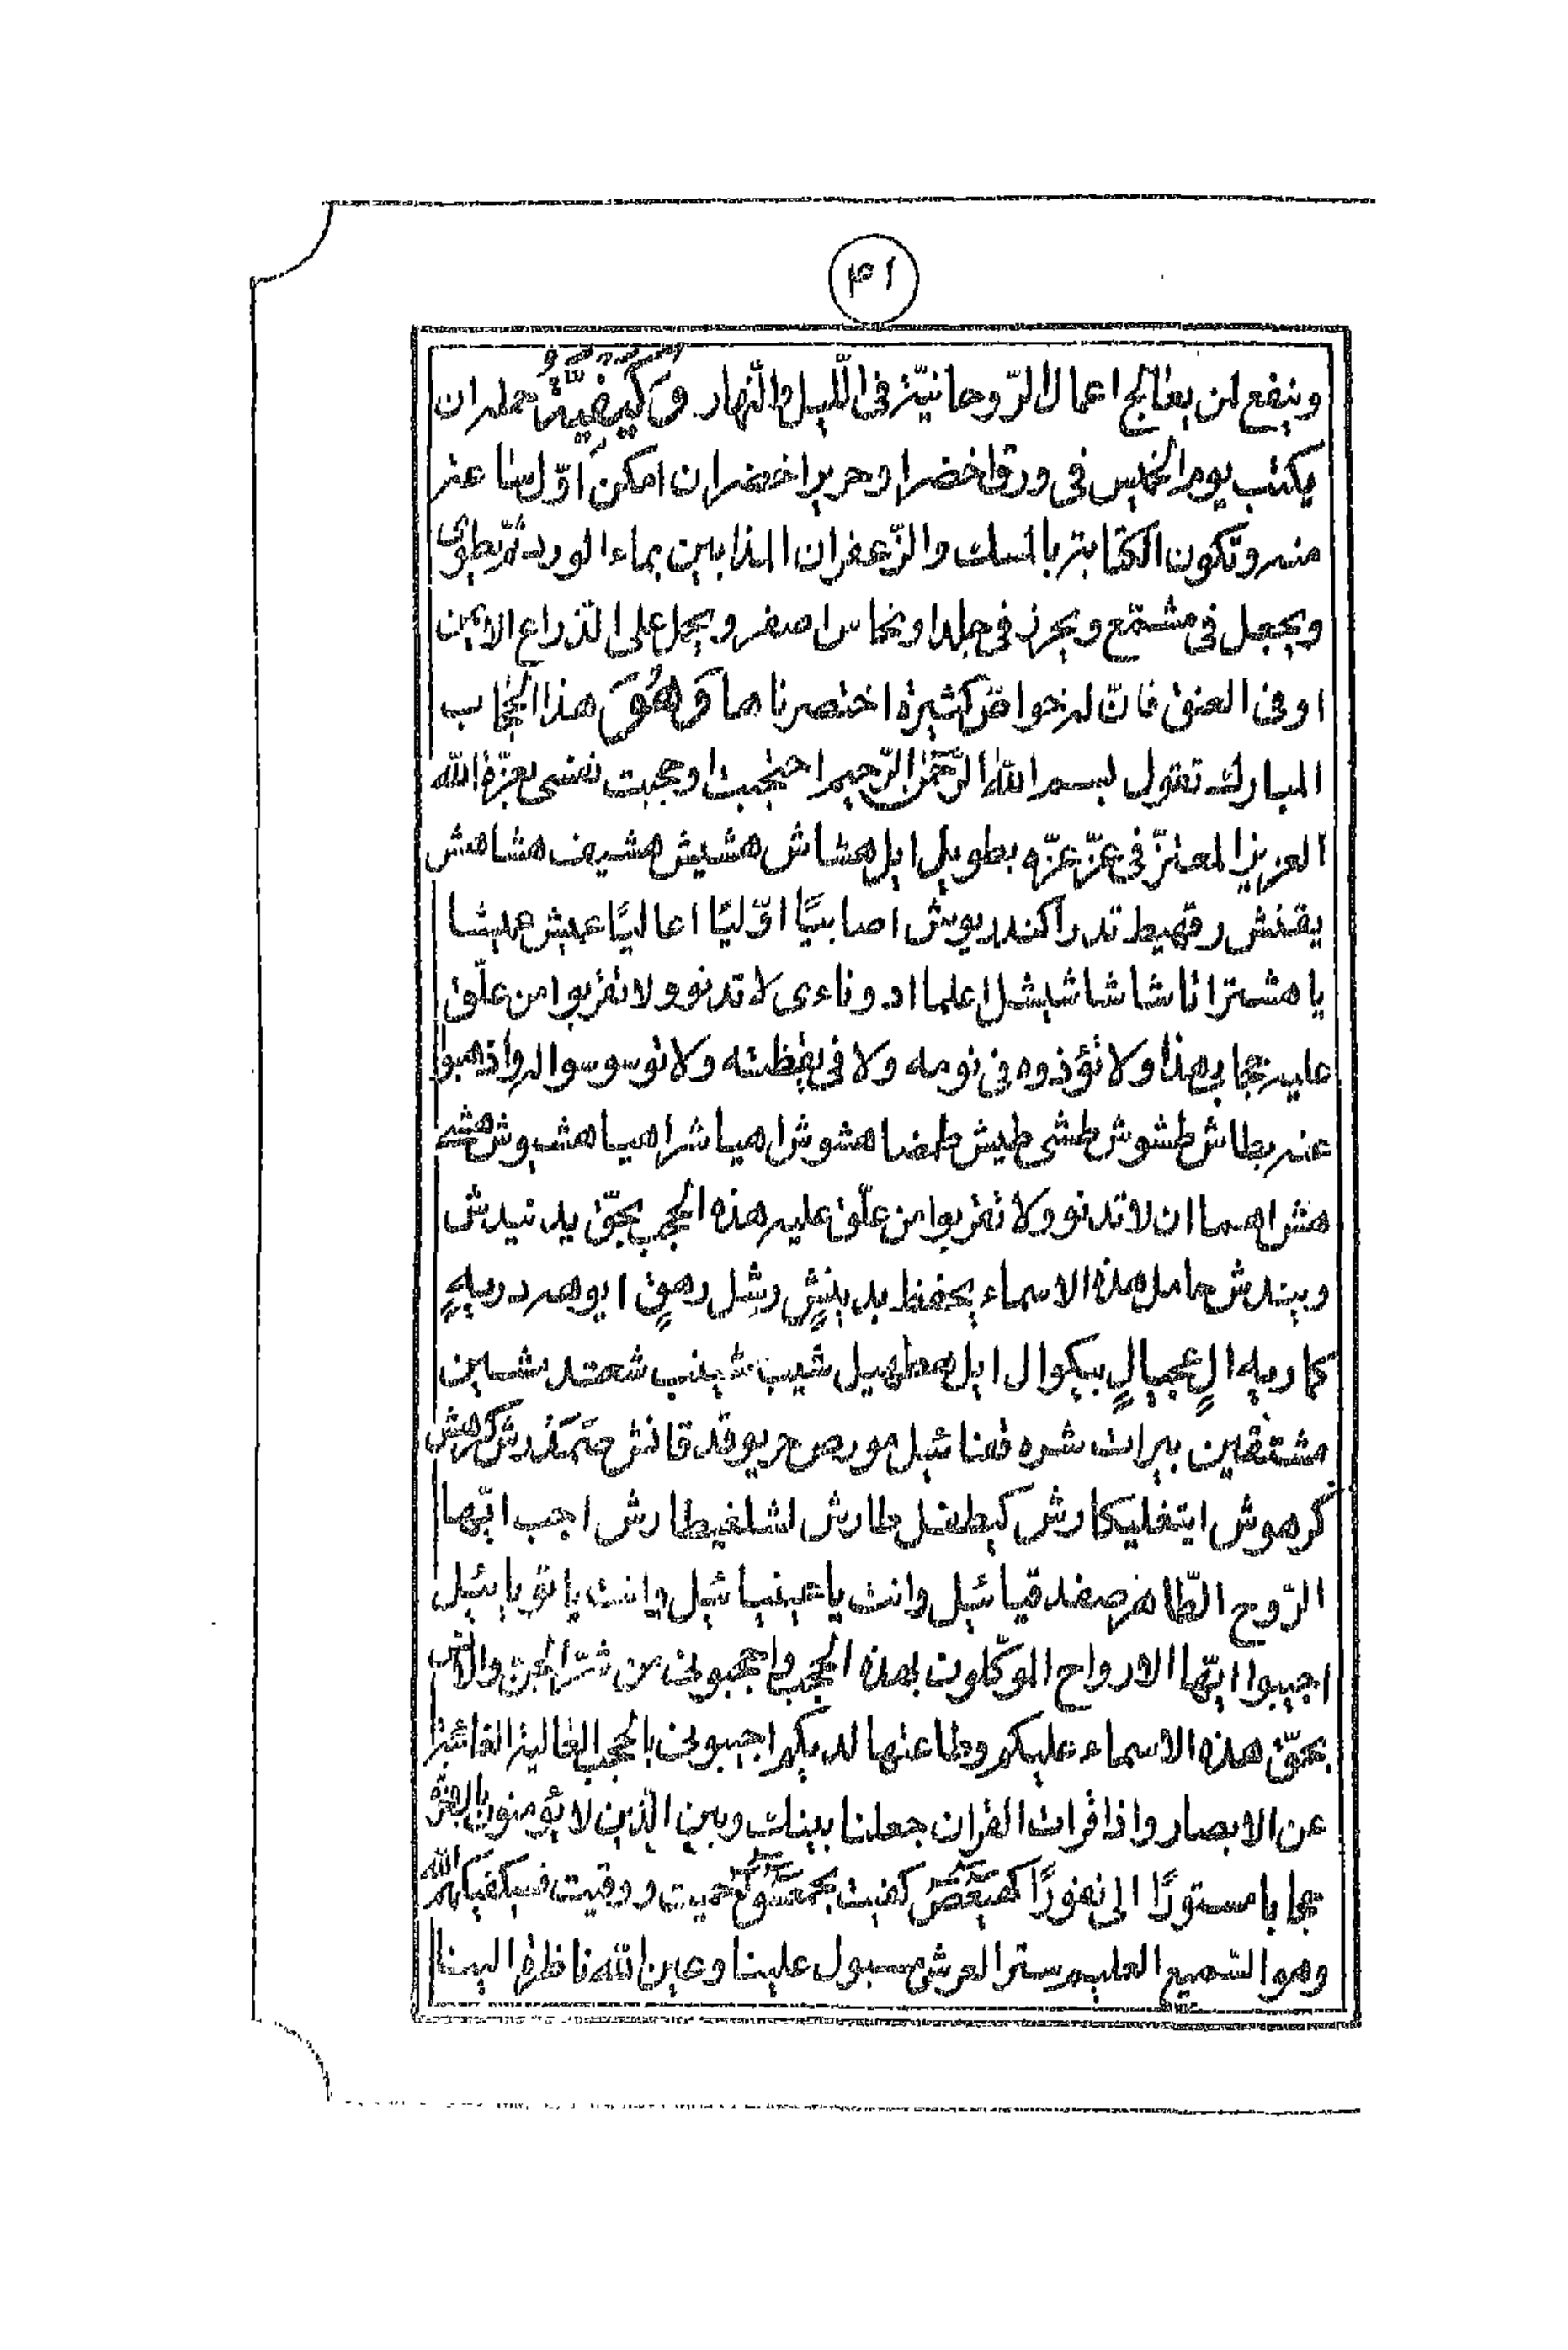 ٤١
وينفع لمن يعالج اعمال الرّوحانيّة فى اللّيل والنّهار وَكَيْفِيَّةُ حمله ان
يكتب يوم الخميس فى ورق اخضر او حرير اخضر ان امكن اوّل ساعة
منه وتكون الكتابة بالمسك والزّعفران المذابين بماء الورد ثمّ يطوى
ويجعل فى مشمّع ويحرز فى جلد او نحاس اصفر ويحمل على الذراع الايمن
او فى العنق فانّ له خواصّ كثيرة اختصرناها وَهُوَ هذا الحجاب
المبارك تقول بسم الله الرّحمن الرّحيم احتجبت او حجبت نفسى بعزّة الله
العزيز المعتزّ فى عزّ عزّه بطويل ايل هشاش هشيش هشيف هشاهش
يقنش رقهيط تدراكندريوش اصابيًا اوّليًا اعاليًا عيش عيشا
يا هشترا ناشا شاشيشل اعلما ادوناءى لا تدنو ولا تقربوا من علّق
عليه حجابى هذا ولا تؤذوه فى نومه ولا فى يقظته ولا توسوسوا له واذهبوا
عنه بطاش طشوش طشى طيش طضا هشوش اهيا شراهيا هشبوش هشه
هشراهما ان لا تدنو ولا تقربوا من علّق عليه هذه الحجب بحقّ يدنيدش
وبيندش حامل هذه الاسماء يحفظ بدينشٍ رشِل رهقٍ ايوهم دريهٍ
كماريه الٍ عجالٍ بيكوال ايل همطهيل شيب شعتد
مشتقين بيراث شره فمنائيل مورص حريوقد قانش
كرهوش ايتغليكارش كبطفل طارش لشلغيطارش اجب ايّها
الرّوح الطّاهر صفدقيائيل وانت يا عينيائيل وانت يا نوّيائيل
اجيبوا ايّها الارواح الموكّلون بهذه الحجب واحجبونى من شرّ الجن والانس
بحقّ هذه الاسماء عليكم وطاعتها لديكم احجبونى بالحجب الغالية الغائبة
عن الابصار واذا قرات القران جعلنا بينك وبين الّذين لا يؤمنون بالاخرة
حجابا مستورًا الى نفورًا كهيعص كفيت بحمعسق حميت ووقيت فسيكفيكهم الله
وهو السّميع العليم ستر العرش مسبول علينا وعين الله ناظرة الينا